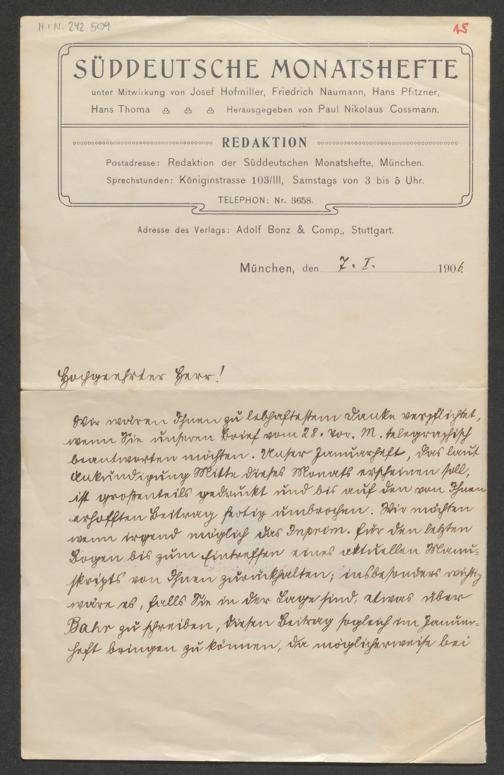 H.I.N. 242.509
15
SÜDDEUTSCHE MONATSHEFTE
unter Mitwirkung von Josef Hofmiller, Friedrich Naumann, Hans Pfitzner,
Hans Thoma Herausgegeben von Paul Nikolaus Cossmann.
REDAKTION
Postadresse: Redaktion der Süddeutschen Monatshefte, München.
Sprechstunden: Königinstrasse 103/III, Samstags von 3 bis 5 Uhr.
TELEPHON: Nr. 3658.
Adresse des Verlags: Adolf Bonz & Comp., Stuttgart.
München, den 7. I. 1906
Hochgeehrter Herr!
Wir wären Ihnen zu lebhaftestem Danke verpflichtet,
wenn Sie unseren Brief vom 28. vor. M. telegraphisch
beantworten möchten. Unser Januarheft, das laut
Ankündigung Mitte dieses Monats erscheinen soll,
ist großenteils gedruckt und bis auf den von Ihnen
erhofften Beitrag fertig umbrochen. Wir möchten
wenn irgend möglich das Inprim. für den letzten
Bogen bis zum Eintreffen eines aktuellen Manu-
skripts von Ihnen zurückhalten; insbesonders wichtig
wäre es, falls Sie in der Lage sind, etwas über
Bahr zu schreiben, diesen Beitrag sogleich im Januar-
heft bringen zu können, da möglicherweise bei